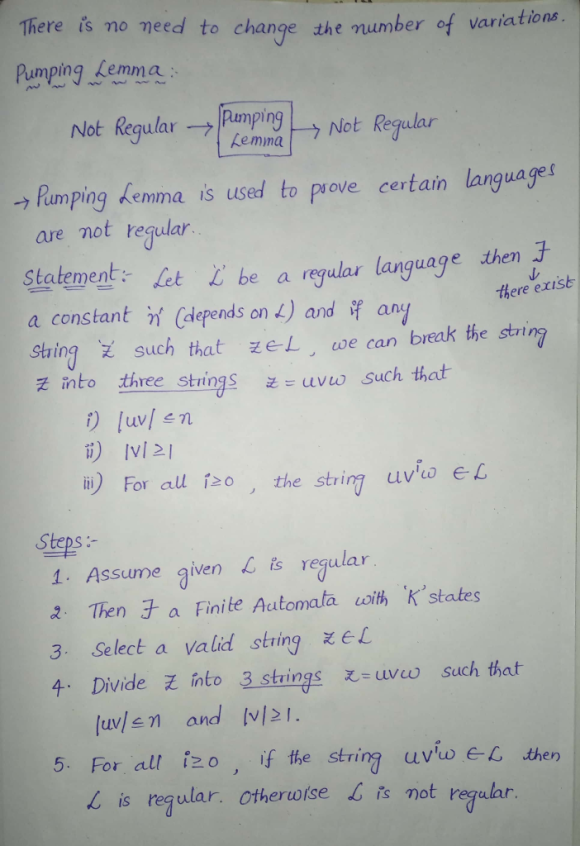 There is no need to change the number of variations.
Pumping Lemma:
Not Regular → Pumping Lemma → Not Regular
→ Pumping Lemma is used to prove certain languages
are not regular.
Statement:- Let 'L' be a regular language then ∃
↓
there exist
a constant 'n' (depends on L) and if any
string 'z' such that z∈L, we can break the string
z into three strings z = uvw such that
i) |uv| ≤ n
ii) |v| ≥ 1
iii) For all i≥0, the string uvⁱw ∈ L
Steps:-
1. Assume given L is regular.
2. Then ∃ a Finite Automata with 'K' states
3. Select a valid string z ∈ L
4. Divide z into 3 strings z=uvw such that
|uv| ≤ n and |v| ≥ 1.
5. For all i≥0, if the string uvⁱw ∈ L then
L is regular. Otherwise L is not regular.